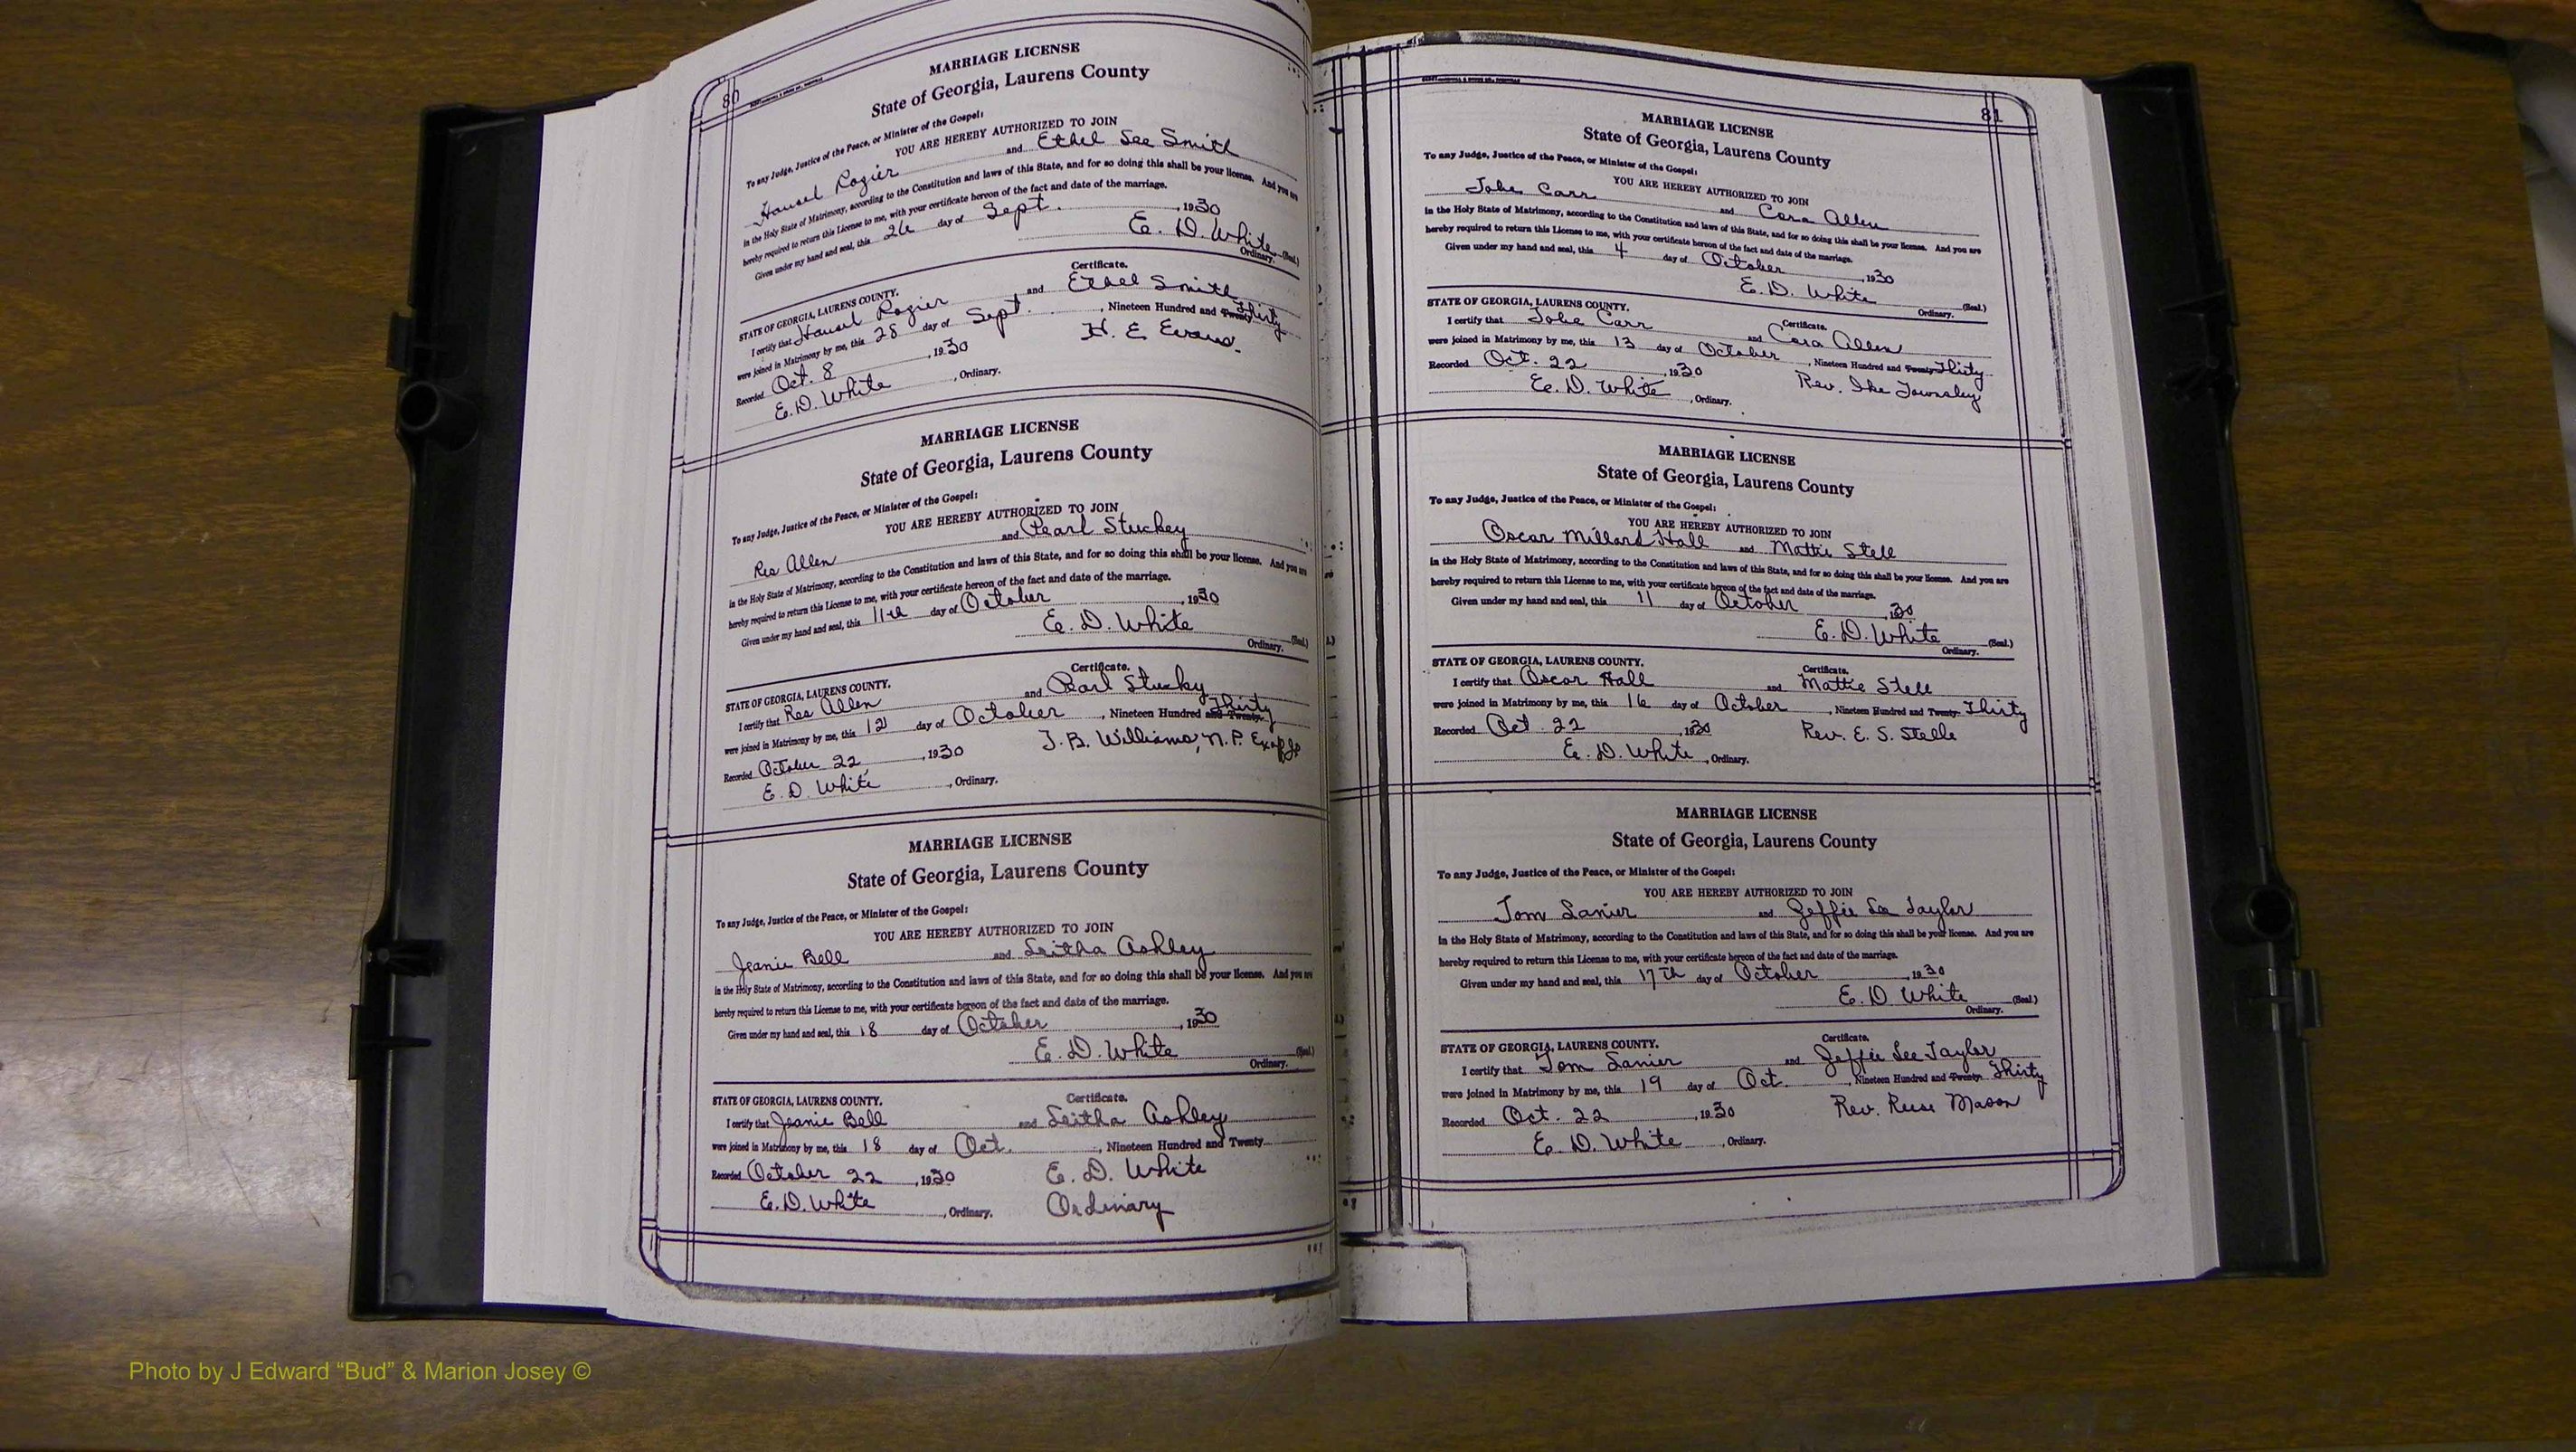 80
MARRIAGE LICENSE
State of Georgia, Laurens County
To any Judge, Justice of the Peace, or Minister of the Gospel:
YOU ARE HEREBY AUTHORIZED TO JOIN
Hansel Rozier and Ethel Lee Smith
in the Holy State of Matrimony, according to the Constitution and laws of this State, and for so doing this shall be your license. And you are
hereby required to return this License to me, with your certificate hereon of the fact and date of the marriage.
Given under my hand and seal, this 26 day of Sept. , 1930
E. D. White (Seal.)
Ordinary.
Certificate.
STATE OF GEORGIA, LAURENS COUNTY.
I certify that Hansel Rozier and Ethel Smith
were joined in Matrimony by me, this 28 day of Sept. , Nineteen Hundred and Twenty Thirty
Recorded Oct. 8 , 1930 H. E. Evans.
E. D. White , Ordinary.
MARRIAGE LICENSE
State of Georgia, Laurens County
To any Judge, Justice of the Peace, or Minister of the Gospel:
YOU ARE HEREBY AUTHORIZED TO JOIN
Allen and Pearl Stuckey
in the Holy State of Matrimony, according to the Constitution and laws of this State, and for so doing this shall be your license. And you are
hereby required to return this License to me, with your certificate hereon of the fact and date of the marriage.
Given under my hand and seal, this 11th day of October , 1930
E. D. White (Seal.)
Ordinary.
Certificate.
STATE OF GEORGIA, LAURENS COUNTY.
I certify that Allen and Pearl Stucky
were joined in Matrimony by me, this 12 day of October , Nineteen Hundred and Twenty Thirty
Recorded October 22 , 1930 J. B. Williams, N. P. Ex of Jp
E. D. White , Ordinary.
MARRIAGE LICENSE
State of Georgia, Laurens County
To any Judge, Justice of the Peace, or Minister of the Gospel:
YOU ARE HEREBY AUTHORIZED TO JOIN
Jeanie Bell and Leitha Ashley
in the Holy State of Matrimony, according to the Constitution and laws of this State, and for so doing this shall be your license. And you are
hereby required to return this License to me, with your certificate hereon of the fact and date of the marriage.
Given under my hand and seal, this 18 day of October , 1930
E. D. White (Seal.)
Ordinary.
Certificate.
STATE OF GEORGIA, LAURENS COUNTY.
I certify that Jeanie Bell and Leitha Ashley
were joined in Matrimony by me, this 18 day of Oct. , Nineteen Hundred and Twenty
Recorded October 22 , 1930 E. D. White
E. D. White , Ordinary. Ordinary
81
MARRIAGE LICENSE
State of Georgia, Laurens County
To any Judge, Justice of the Peace, or Minister of the Gospel:
YOU ARE HEREBY AUTHORIZED TO JOIN
Carr and Cora Allen
in the Holy State of Matrimony, according to the Constitution and laws of this State, and for so doing this shall be your license. And you are
hereby required to return this License to me, with your certificate hereon of the fact and date of the marriage.
Given under my hand and seal, this 4 day of October , 1930
E. D. White (Seal.)
Ordinary.
Certificate.
STATE OF GEORGIA, LAURENS COUNTY.
I certify that Carr and Cora Allen
were joined in Matrimony by me, this 13 day of October , Nineteen Hundred and Twenty Thirty
Recorded Oct. 22 , 1930 Rev. Ike Townsley
E. D. White , Ordinary.
MARRIAGE LICENSE
State of Georgia, Laurens County
To any Judge, Justice of the Peace, or Minister of the Gospel:
YOU ARE HEREBY AUTHORIZED TO JOIN
Oscar Millard Hall and Mattie Stell
in the Holy State of Matrimony, according to the Constitution and laws of this State, and for so doing this shall be your license. And you are
hereby required to return this License to me, with your certificate hereon of the fact and date of the marriage.
Given under my hand and seal, this 11 day of October , 30
E. D. White (Seal.)
Ordinary.
Certificate.
STATE OF GEORGIA, LAURENS COUNTY.
I certify that Oscar Hall and Mattie Stell
were joined in Matrimony by me, this 16 day of October , Nineteen Hundred and Twenty Thirty
Recorded Oct. 22 , 1930 Rev. E. S. Stelle
E. D. White , Ordinary.
MARRIAGE LICENSE
State of Georgia, Laurens County
To any Judge, Justice of the Peace, or Minister of the Gospel:
YOU ARE HEREBY AUTHORIZED TO JOIN
Tom Lanier and Jeffie Lee Taylor
in the Holy State of Matrimony, according to the Constitution and laws of this State, and for so doing this shall be your license. And you are
hereby required to return this License to me, with your certificate hereon of the fact and date of the marriage.
Given under my hand and seal, this 17th day of October , 1930
E. D. White (Seal.)
Ordinary.
Certificate.
STATE OF GEORGIA, LAURENS COUNTY.
I certify that Tom Lanier and Jeffie Lee Taylor
were joined in Matrimony by me, this 19 day of Oct. , Nineteen Hundred and Twenty Thirty
Recorded Oct. 22 , 1930 Rev. Reese Mason
E. D. White , Ordinary.
Photo by J Edward “Bud” & Marion Josey ©